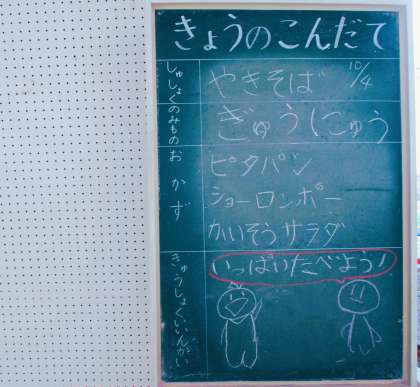 きょうのこんだて
しゅしょく
やきそば
10/4
のみもの
ぎゅうにゅう
おかず
ピタパン
ショーロンポー
かいそうサラダ
きゅうしょくいいんかい
いっぱいたべよう!